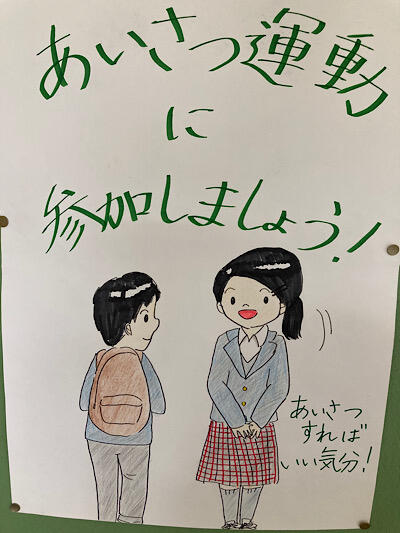 あいさつ運動
に
参加しましょう!
あいさつ
すれば
いい気分!